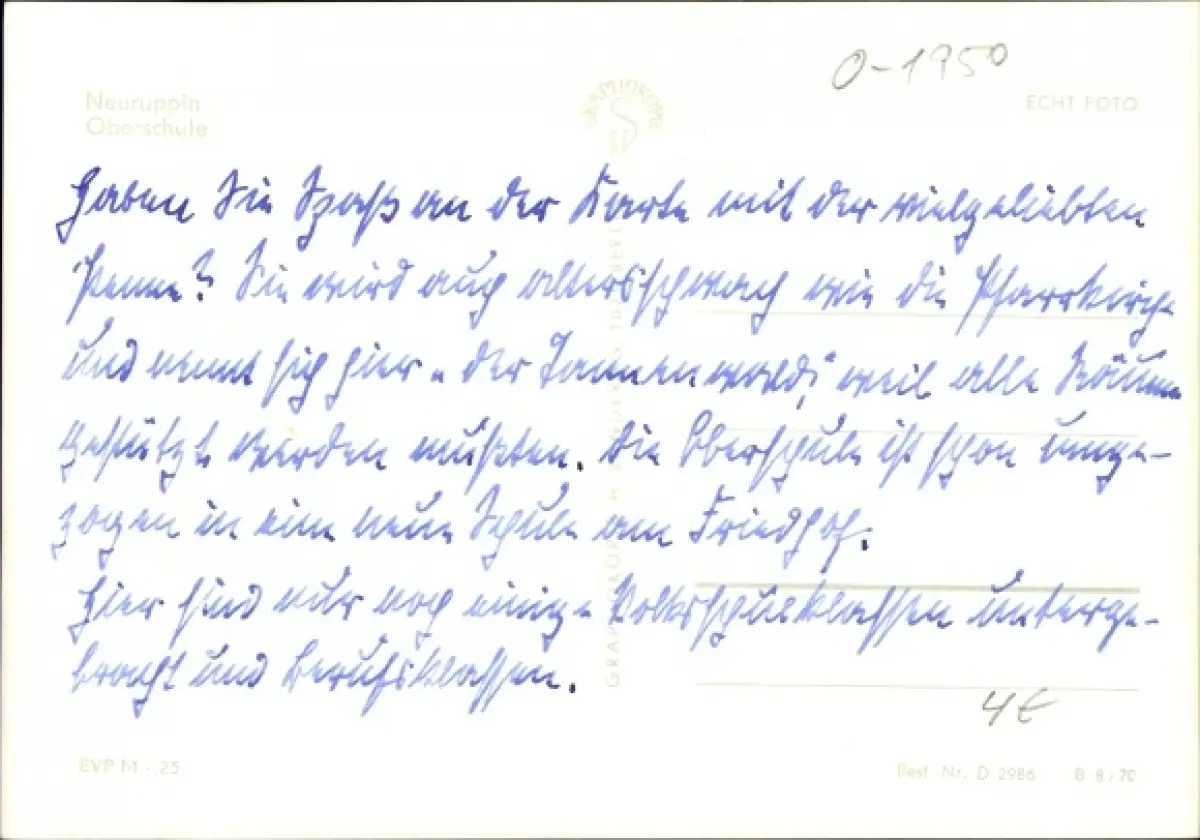 O-1950
Neuruppin
Oberschule
ECHT FOTO
Haben Sie Spaß an der Karte mit der vielgeliebten
Penne? Sie wird auch altersschwach wie die Pfarrkirche
und nennt sich hier „der Tannenwald", weil alle Räume
gestützt werden mußten. Die Oberschule ist schon umge-
zogen in eine neue Schule am Friedhof.
Hier sind nur noch einige Volksschulklassen unterge-
bracht und Berufsklassen.
4€
EVP M -.25
Best.-Nr. D 2986 B 8/70